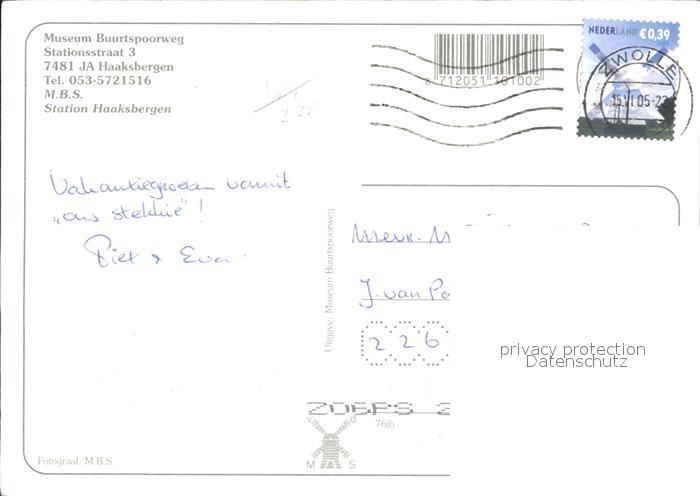 Museum Buurtspoorweg
Stationsstraat 3
7481 JA Haaksbergen
Tel. 053-5721516
M.B.S.
Station Haaksbergen
8 712051 181002
NEDERLAND €0,39
ZWOLLE
15.VI.05-23
Vakantiegroeten vanuit
„ons stekkie”!
Piet & Eva.
Uitgave: Museum Buurtspoorweg
Mevr. M
J. van Po
226
privacy protection
Datenschutz
76jh
M A S
Fotograaf: M.B.S.